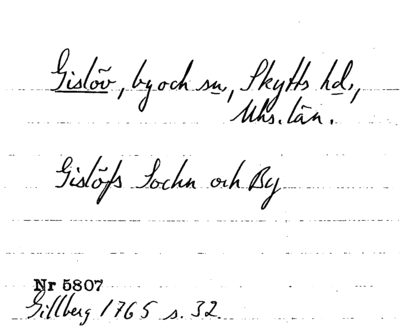 Gislöv, by och sn, Skytts hd,
Mhs. län.
Gislöfs Sochn och By
Nr 5807
Gillberg 1765 s. 32.